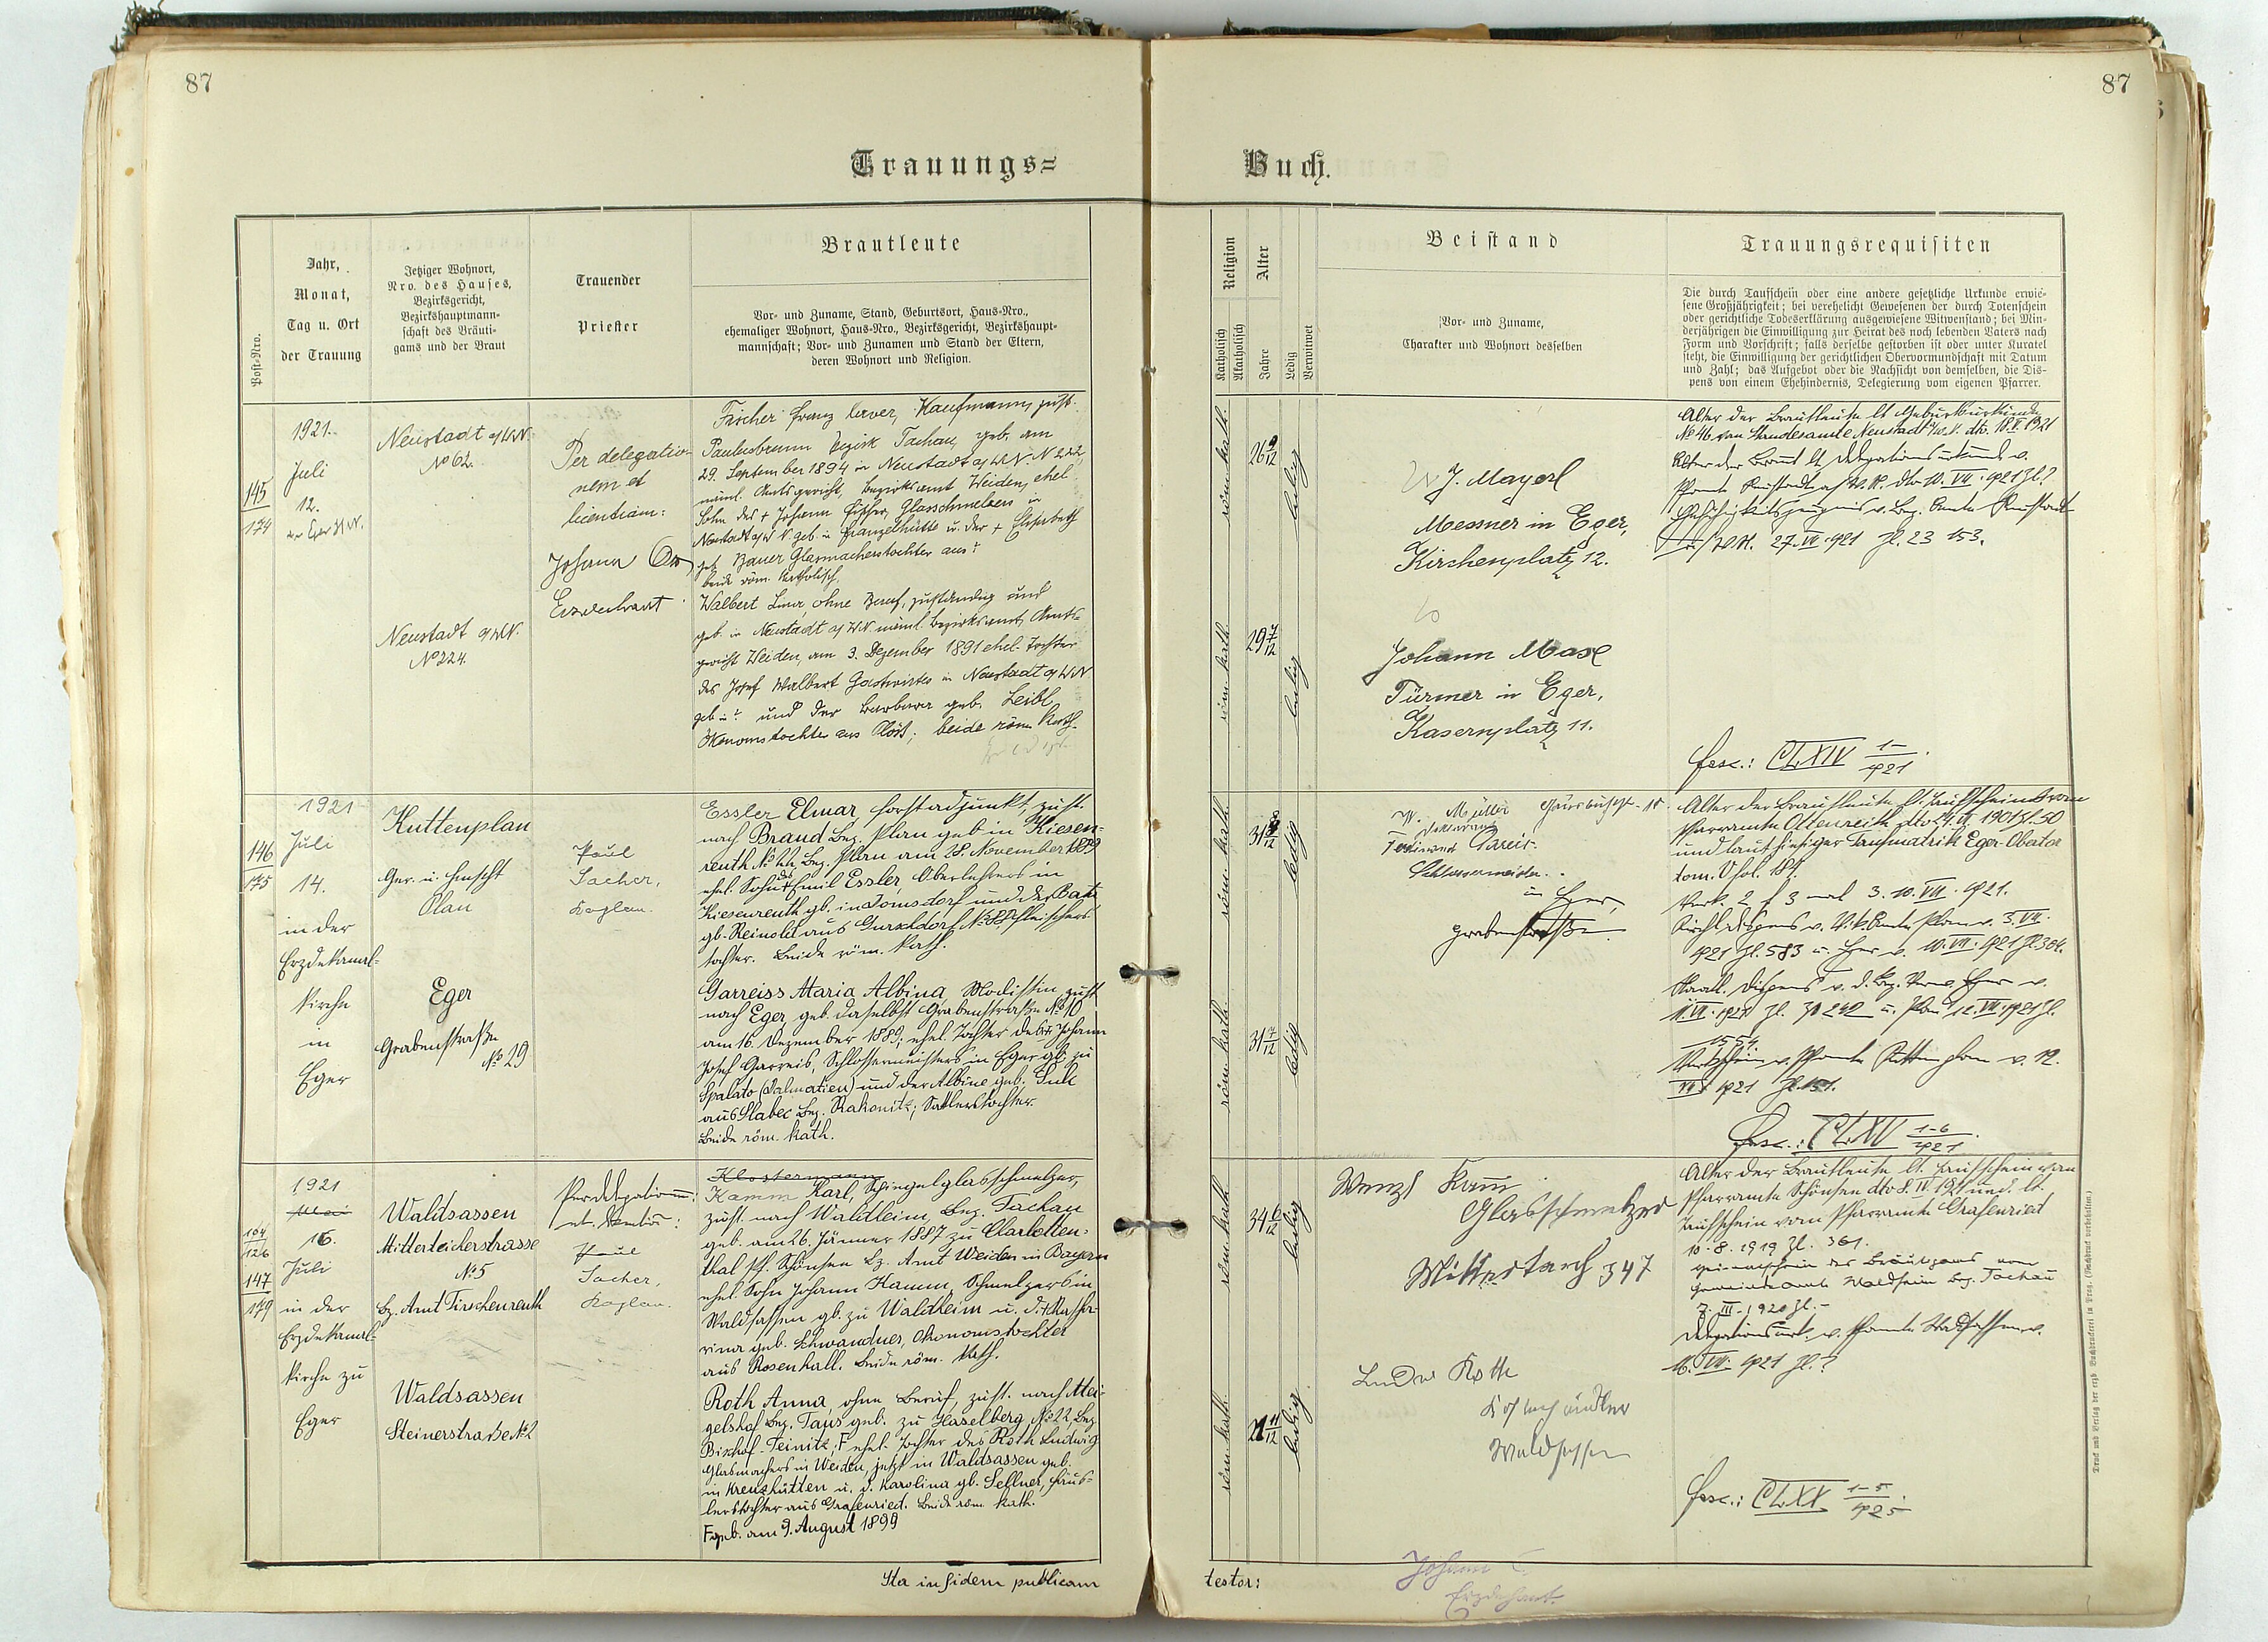 87
87
Trauungs=
Buch.
Post-Nro.
Jahr,
Monat,
Tag u. Ort
der Trauung
Jetziger Wohnort,
Nro. des Hauses,
Bezirksgericht,
Bezirkshauptmann-
schaft des Bräuti-
gams und der Braut
Trauender
Priester
Brautleute
Vor- und Zuname, Stand, Geburtsort, Haus-Nro.,
ehemaliger Wohnort, Haus-Nro., Bezirksgericht, Bezirkshaupt-
mannschaft; Vor- und Zunamen und Stand der Eltern,
deren Wohnort und Religion.
Religion
Katholisch
Akatholisch
Alter
Jahre
Ledig
Verwitwet
Beistand
Vor- und Zuname,
Charakter und Wohnort desselben
Trauungsrequisiten
Die durch Taufschein oder eine andere gesetzliche Urkunde erwie-
sene Großjährigkeit; bei verehelicht Gewesenen der durch Totenschein
oder gerichtliche Todeserklärung ausgewiesene Witwenstand; bei Min-
derjährigen die Einwilligung zur Heirat des noch lebenden Vaters nach
Form und Vorschrift; falls derselbe gestorben ist oder unter Kuratel
steht, die Einwilligung der gerichtlichen Obervormundschaft mit Datum
und Zahl; das Aufgebot oder die Nachsicht von demselben, die Dis-
pens von einem Ehehindernis, Delegierung vom eigenen Pfarrer.
145
174
1921.
Juli
12.
Neustadt a/W.N.
No 62.
Neustadt a/W.N.
No 224.
Per delegatio-
nem et
licentiam:
Johann
Fischer Franz Xaver, Kaufmann, zust.
Paulusbrunn Bezirk Tachau, geb. am
29. September 1894 in Neustadt a/W.N. N 222,
näml. Amtsgericht, Bezirksamt Weiden, ehel.
Sohn des + Johann Fischer, Glasschmelzers in
Neustadt a/W.N. geb. in Franzelhütte u. der + Elisabeth
geb. Bauer Glasmacherstochter aus ?
beide röm. katholisch,
Walbert Lina, ohne Beruf, zuständig und
geb. in Neustadt a/W.N. näml. Bezirksamt, Amts-
gericht Weiden, am 3. Dezember 1891 ehel. Tochter
des Josef Walbert Gastwirtes in Neustadt a/W.N.
geb. in ? und der Barbara geb. Leibl
Ökonomstochter aus Plöß; beide röm. kath.
röm. kath.
26 9/12
ledig
röm. kath.
29 7/12
ledig
J. Mayerl
Messner in Eger,
Kirchenplatz 12.
Johann Maxl
Türmer in Eger,
Kasernplatz 11.
Alter der Brautleute lt Geburtsurkunde
No 46 vom Standesamte Neustadt a/W.N. dto. 18.V.1921
Alter der Braut lt Delegationsurkunde v.
27.VI.1921 Zl. 23 153.
fasc.: CLXIV 1-/1921
146
175
1921
Juli
14.
in der
Erzdekanal-
kirche
in
Eger
Kuttenplan
Ger. u. Hmscht
Plan
Eger
Grabenstraße
No 29
Paul
Sacher,
Kaplan.
Essler Elmar, Forstadjunkt, zust.
nach Brand Bez. Plan geb in Kiesen-
reuth No 22, Bez. Plan am 28. November 1889
ehel. Sohn des Emil Essler, Oberlehrers in
Kiesenreuth gb. in Tomsdorf und der Bata
gb. Reinold aus Gurschdorf No 88, Fleischers-
tochter. Beide röm. kath.
Garreiss Maria Albina, Modistin, zust.
nach Eger geb. daselbst Grabenstraße No 10
am 16. Dezember 1889; ehel. Tochter des + Johann
Josef Garreis, Schlossermeisters in Eger gb. zu
Spalato (Dalmatien) und der Albine geb. Suk
aus Slabec Bez. Rakonitz; Sattlerstochter.
Beide röm. kath.
röm. kath.
31 8/12
ledig
röm. kath.
31 7/12
ledig
W. Müller
Ferdinand Gareis.
Schlossermeister
in Eger,
Grabenstraße
Alter der Brautleute lt. Taufschein vom
Pfarramte Ottenreith dto 24.VI.1901 Zl. 50
und laut hiesiger Taufmatrik Eger-Obertor
tom. V fol. 187.
Verk. 2 f 3 mal 3. 10. VII. 1921.
1921 Zl. 583 u. Eger v. 10.VII.1921 Zl. 304.
1554.
VII 1921 Zl. 151.
Fasc.: CLXV 1-6/1921
104
126
147
179
1921
Mai
16.
Juli
in der
Erzdekanal-
kirche zu
Eger
Waldsassen
Mitterteicherstrasse
No 5
Bz. Amt Tirschenreuth
Waldsassen
Steinerstraße No 2
Per delegationem:
Paul
Sacher,
Kaplan.
Klostermann
Kamm Karl, Spiegelglasschmelzer,
zust. nach Waldheim, Bez. Tachau
geb. am 26. Jänner 1887 zu Charlotten-
thal Pf. Schönsee Bz. Amt Weiden in Bayern
ehel. Sohn Johann Kamm, Schmelzers in
Waldsassen gb. zu Waldheim u. d. + Katha-
rina geb. Schwandner, Ökonomstochter
aus Rosenhall. Beide röm. kath.
Roth Anna, ohne Beruf, zust. nach Mei-
gelshof Bez. Taus geb. zu Haselberg No 22, Bez
Bischof-Teinitz; F ehel. Tochter des Roth Ludwig
Glasmachers in Weiden, jetzt in Waldsassen geb.
in Kreuzhütten u. d. Karolina gb. Sellner, Häus-
lerstochter aus Grafenried. Beide röm. kath.
F geb. am 9. August 1899
röm. kath.
34 6/12
ledig
röm. kath.
21 11/12
ledig
Wenzl Kamm
Glasschmelzer
Mitterteich 347
Ludw Roth
Waldsassen
Alter der Brautleute lt. Taufschein vom
Pfarramte Schönsee dto 8.IV.1921 und lt.
Taufschein vom Pfarramte Grafenried
10.8.1919 Zl. 361.
Heimatschein des Bräutigams vom
Gemeindeamte Waldheim Bez. Tachau
7.III.1920 Zl.-
Delegationsurk. v. Pfarramte Waldsassen v.
16.VII.1921 Zl.?
fasc.: CLXX 1-5/1925
Ita in fidem publicam
testor:
Johann
Erzdechant.
Druck und Verlag der erzb. Buchdruckerei in Prag. (Nachdruck vorbehalten.)